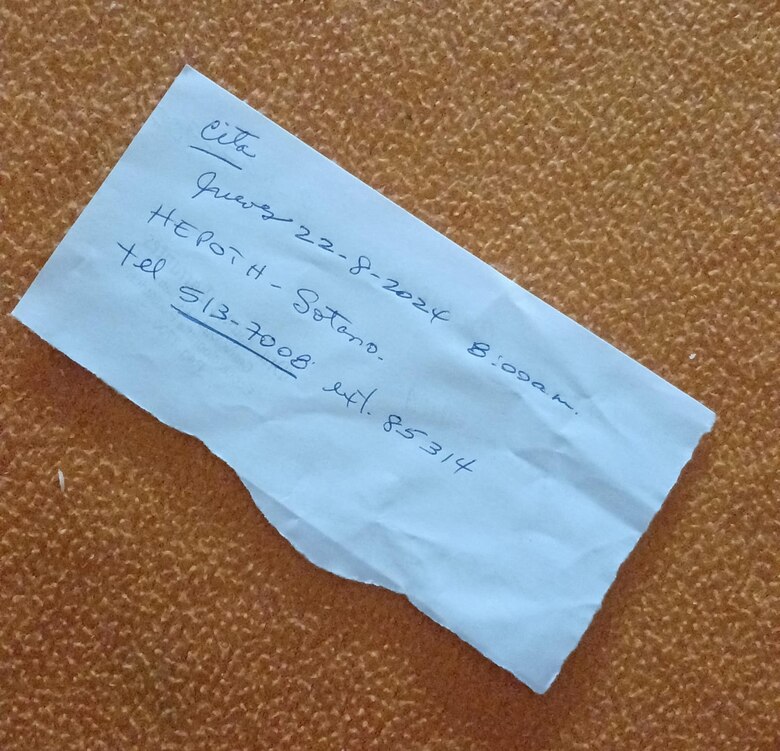 Cita
Jueves 22-8-2024 8:00am.
HEPOTH - Sotano.
tel 513-7008 ext. 85314